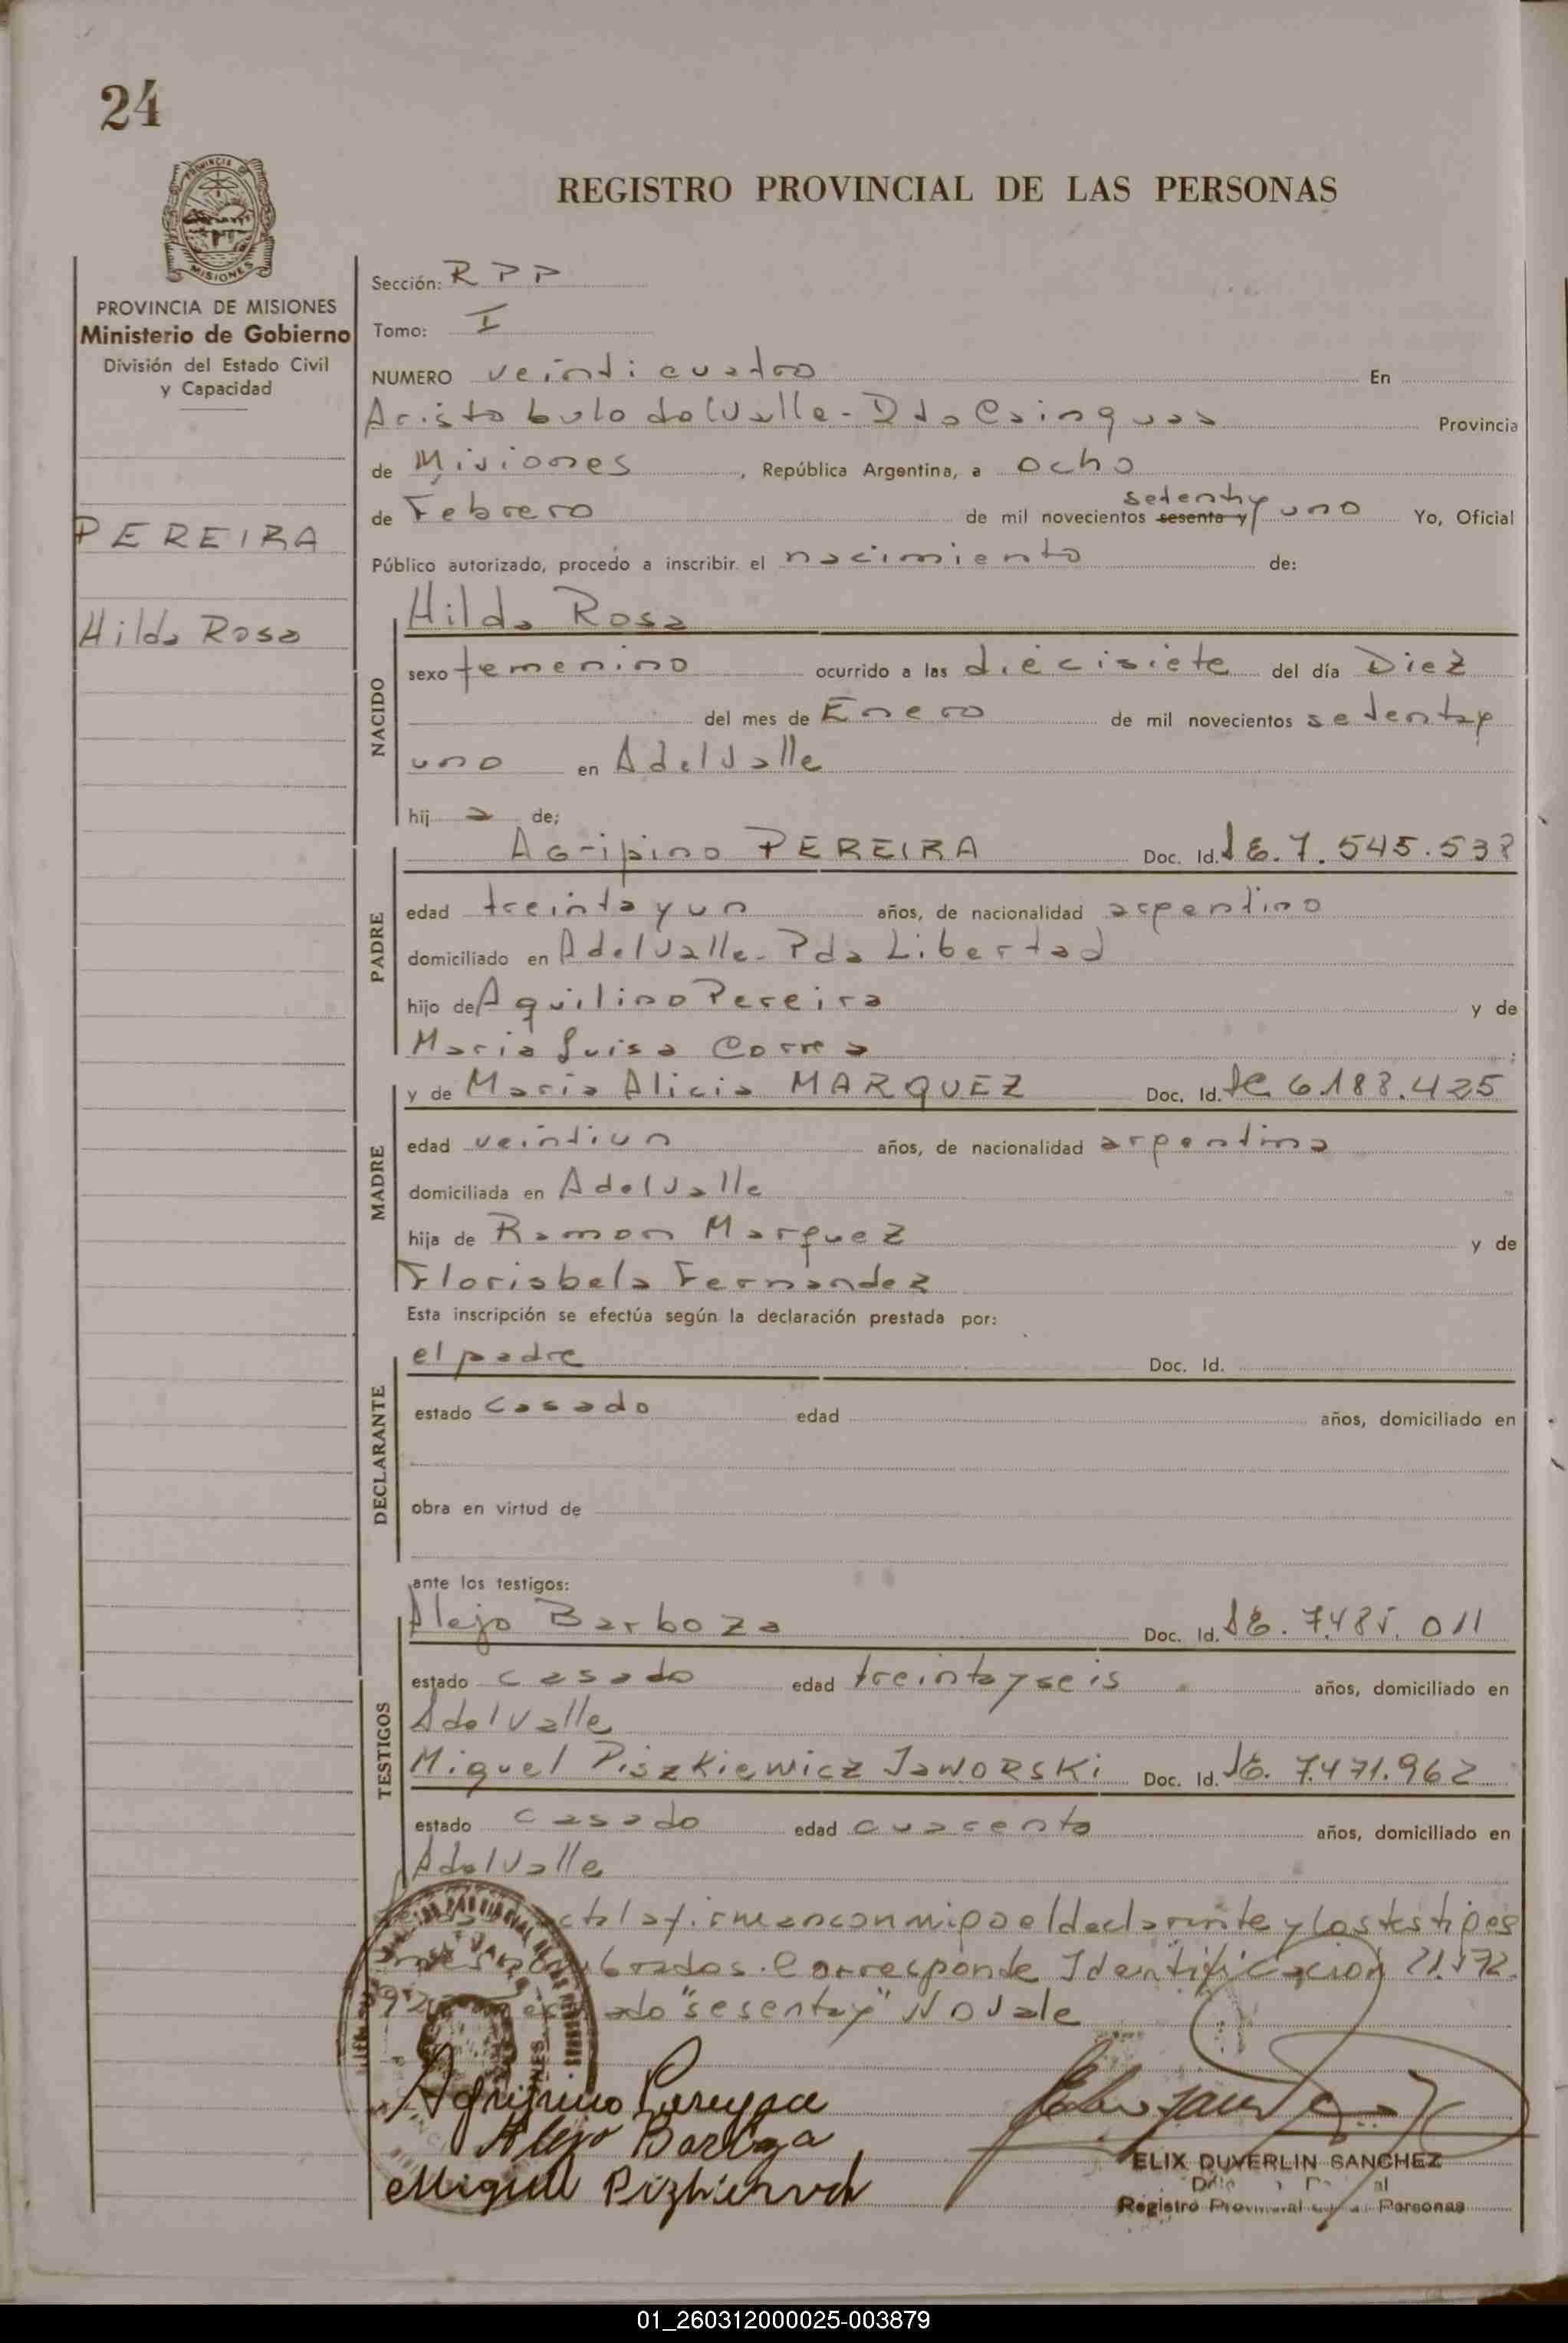 24
PROVINCIA DE
MISIONES
REGISTRO PROVINCIAL DE LAS PERSONAS
PROVINCIA DE MISIONES
Ministerio de Gobierno
División del Estado Civil
y Capacidad
PEREIRA
Hilda Rosa
Sección: RPP
Tomo: I
NUMERO veinticuatro En
Aristobulo del Valle - Dto Cainguas Provincia
de Misiones, República Argentina, a ocho
de Febrero de mil novecientos sesenta y setenta y uno Yo, Oficial
Público autorizado, procedo a inscribir el nacimiento de:
Hilda Rosa
NACIDO
sexo femenino ocurrido a las diecisiete del día Diez
del mes de Enero de mil novecientos setenta y
uno en A del Valle
hij a de;
PADRE
Agripino PEREIRA Doc. Id. LE. 7.545.53
edad treinta y un años, de nacionalidad argentino
domiciliado en A del Valle - Pda Libertad
hijo de Aquilino Pereira y de
Maria Luisa Correa ;
MADRE
y de Maria Alicia MARQUEZ Doc. Id. LC 6.188.425
edad veintiun años, de nacionalidad argentina
domiciliada en A del Valle
hija de Ramon Marquez y de
Florisbela Fernandez
Esta inscripción se efectúa según la declaración prestada por:
DECLARANTE
el padre Doc. Id.
estado casado edad años, domiciliado en
obra en virtud de
ante los testigos:
TESTIGOS
Alejo Barboza Doc. Id. LE. 7.485.011
estado casado edad treinta y seis años, domiciliado en
A del Valle
Miguel Piszkiewicz JaWORSKi Doc. Id. LE. 7.471.962
estado casado edad cuarenta años, domiciliado en
A del Valle
acta la firman conmigo el declarante y los testigos
nombrados. Corresponde Identificación 21.572.
"sesenta y" No vale
Agripino Pereyra
Alejo Barboza
Miguel
ELIX DUVERLIN SANCHEZ
Registro Provincial Personas
01_260312000025-003879